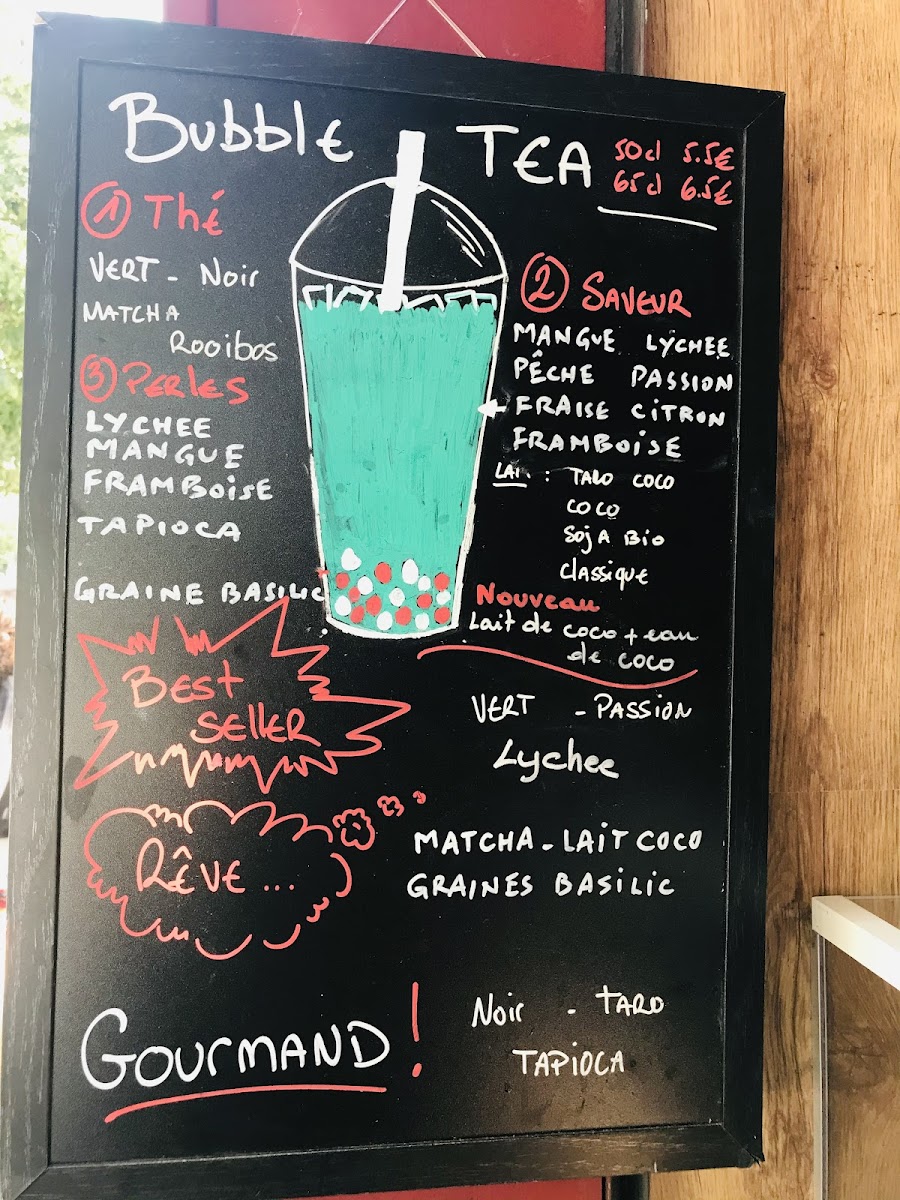 Bubble TEA
50cl 5.5€
65cl 6.5€
① Thé
VERT - Noir
MATCHA
Rooibos
② SAVEUR
MANGUE LYCHEE
PÊCHE PASSION
FRAISE CITRON
FRAMBOISE
LAI : TARO COCO
COCO
SOJA Bio
Classique
Nouveau
Lait de coco + eau
de coco
③ Perles
LYCHEE
MANGUE
FRAMBOISE
TAPIOCA
GRAINE BASILIC
BEST
SELLER
VERT - PASSION
Lychee
RÊVE ...
MATCHA - LAIT COCO
GRAINES BASILIC
GOURMAND !
Noir - TARO
TAPIOCA